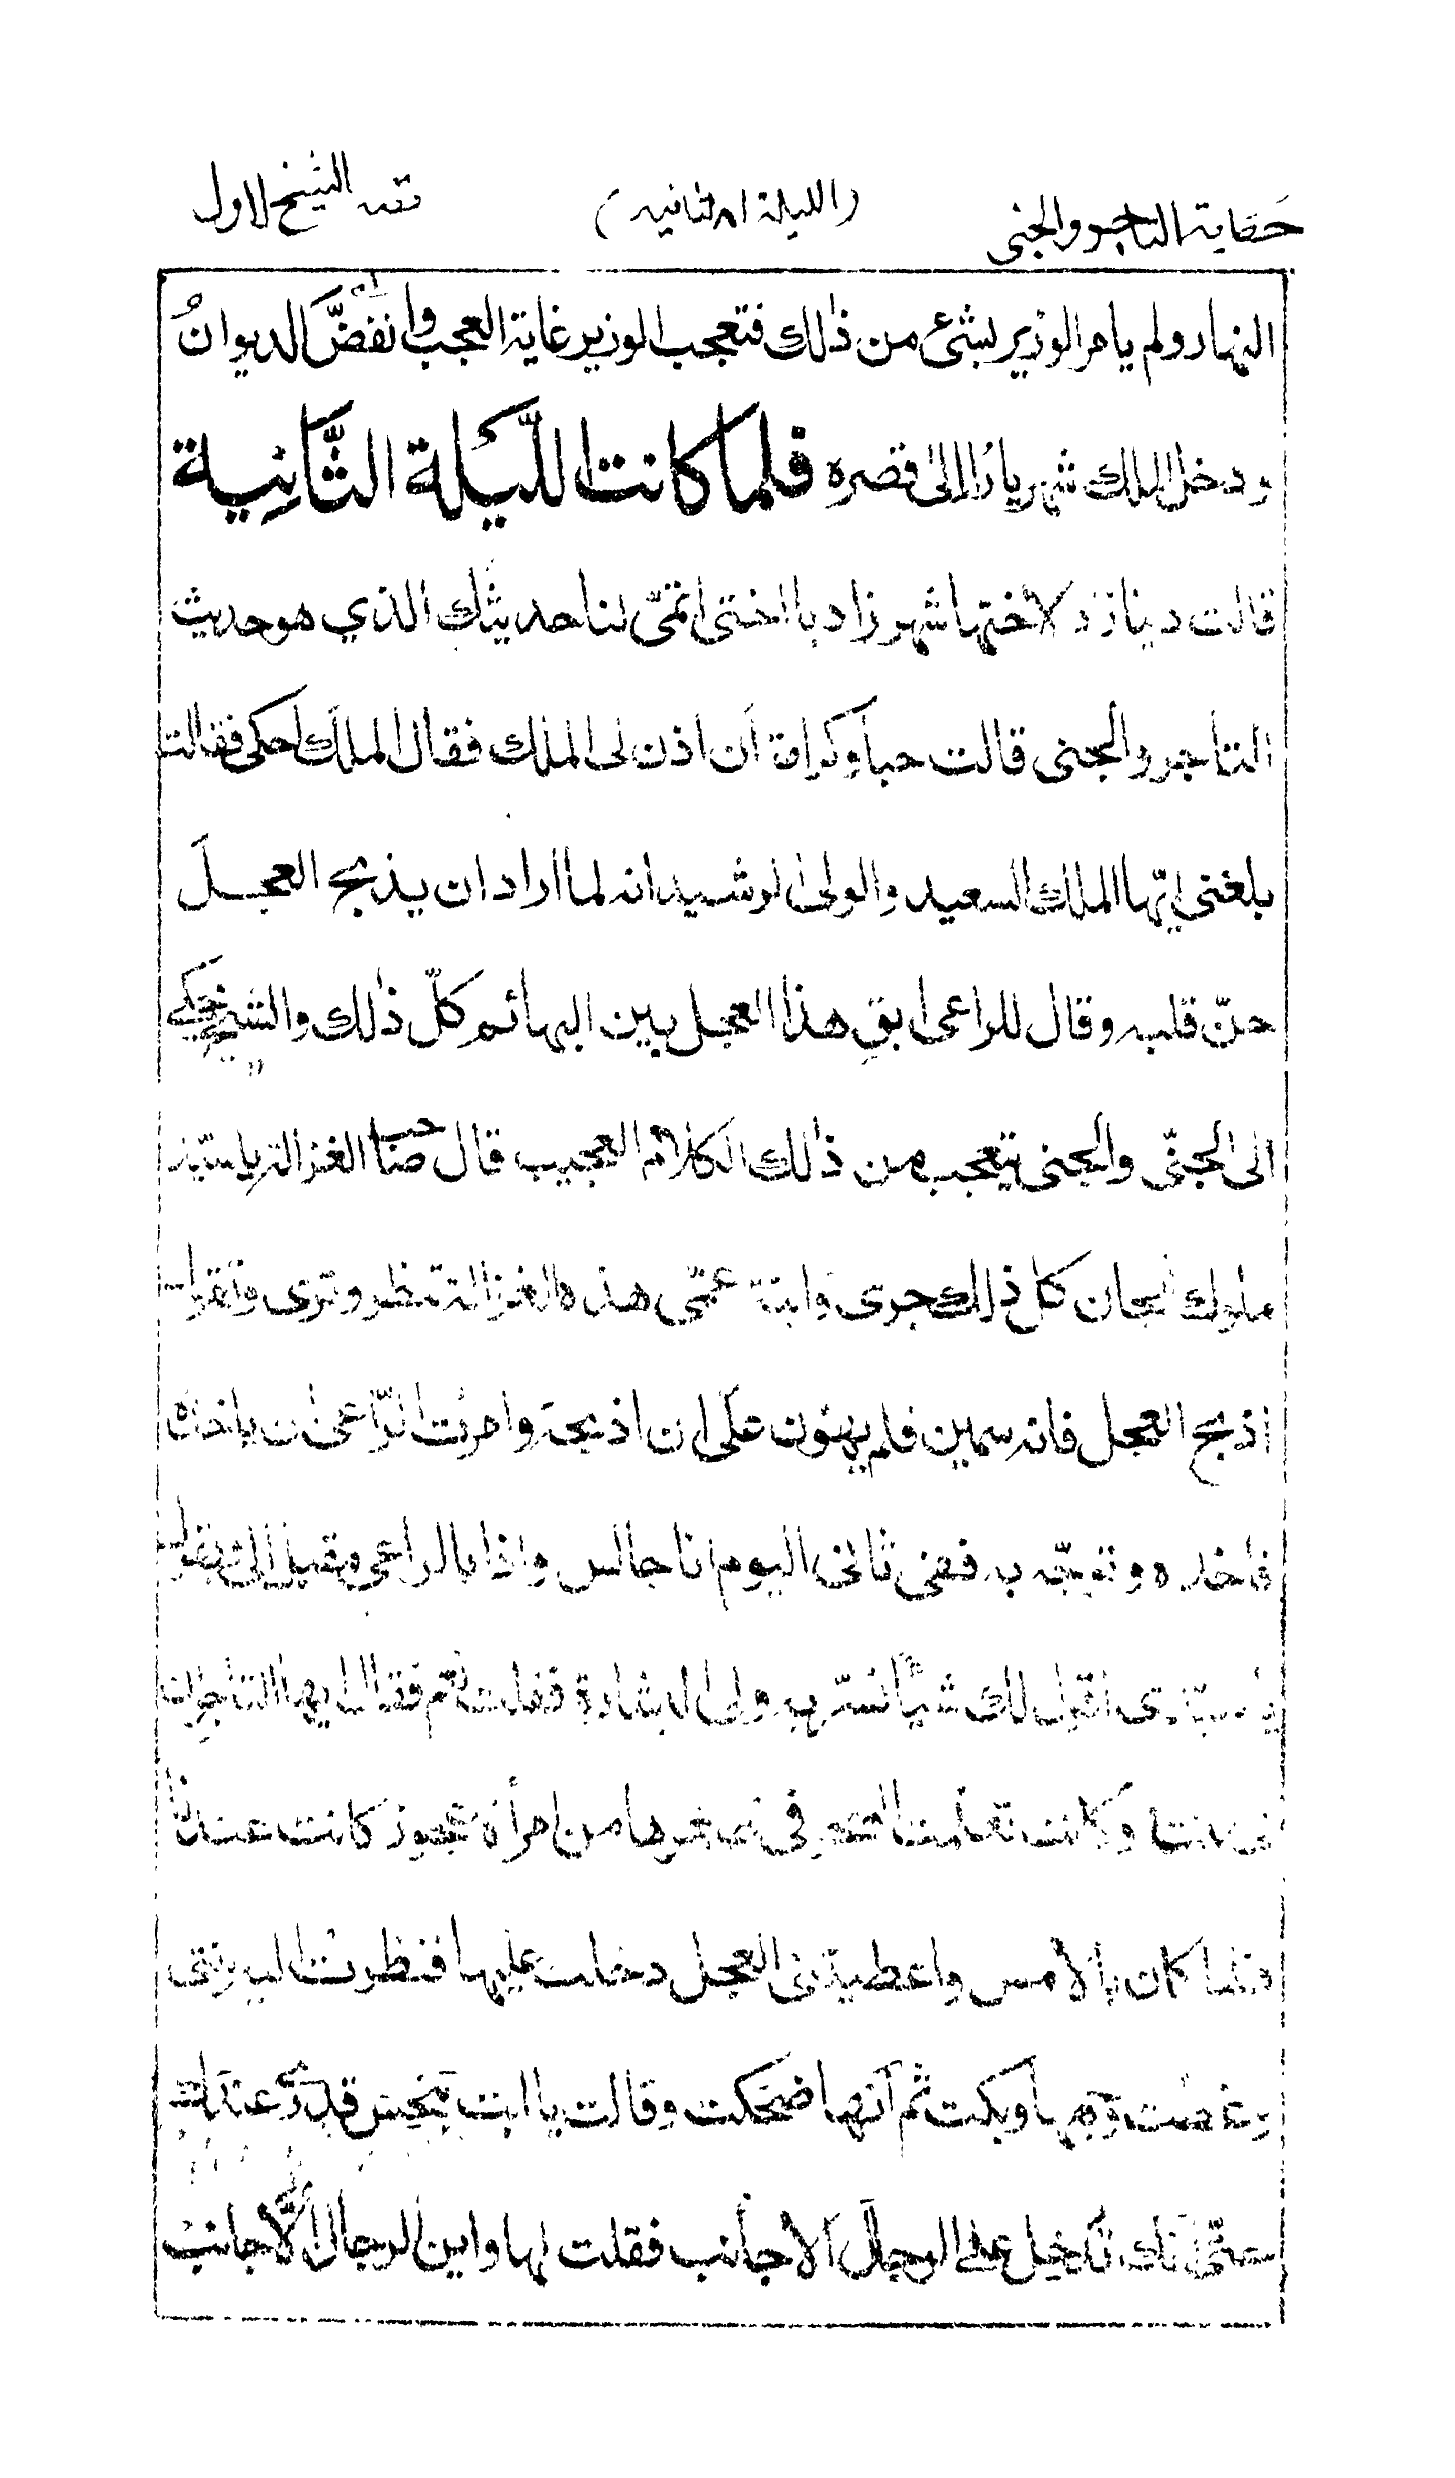 حكاية التاجر والجنى (الليلة الثانية) قصه الشيخ الاول
النهار ولم يامر الوزير بشئ من ذٰلك فتعجب الوزير غاية العجب وانفضَّ الديوانُ
ودخل الملك شهريار الى قصره فلما كانت اللّيلة الثّانِية
قالت دينازد لاختها شهرزاد يا اختى اتمّى لنا حديثك الذي هو حديث
التاجر والجنى قالت حبا وكرامة أن اذن لى الملك فقال الملك احكى فقالت
بلغنى ايّها الملك السعيد والولى الرشيد انه لما اراد ان يذبح العجل
حنّ قلبه وقال للراعى ابقِ هذا العجل بين البهائم كلّ ذٰلك والشيخ يحكى
الى الجنّى والجنى يتعجب من ذٰلك الكلام العجيب قال صاحب الغزالة يا سيّد
ملوك الجان كل ذٰلك جرى وابنة عمّى هذه الغزالة تنظر وترى وتقول
اذبح العجل فانه سمين فلم يهُون علّى ان اذبحه وامرت الرّاعى ان ياخذه
فاخذه وتوجّه به ففى ثانى اليوم انا جالس واذا بالراعى مقبل الىّ يقول
يا سيّدى اقول لك شيأ تسرّ به ولى البشارة فقلت نعم فقال ايها التاجر ان
لى بنتا وكانت تعلّمت السحر فى صغرها من امرأة عجوز كانت عندنا
فلما كان بالامس واعطيتنى العجل دخلت عليها فنظرت اليه بنتى
وغطت وجهها وبكت ثم انّها ضحكت وقالت يا ابت بخس قدرى عندك
حتّى انّك تُدخل علىّ الرجال الاجانب فقلت لها واين الرجال الاجانب